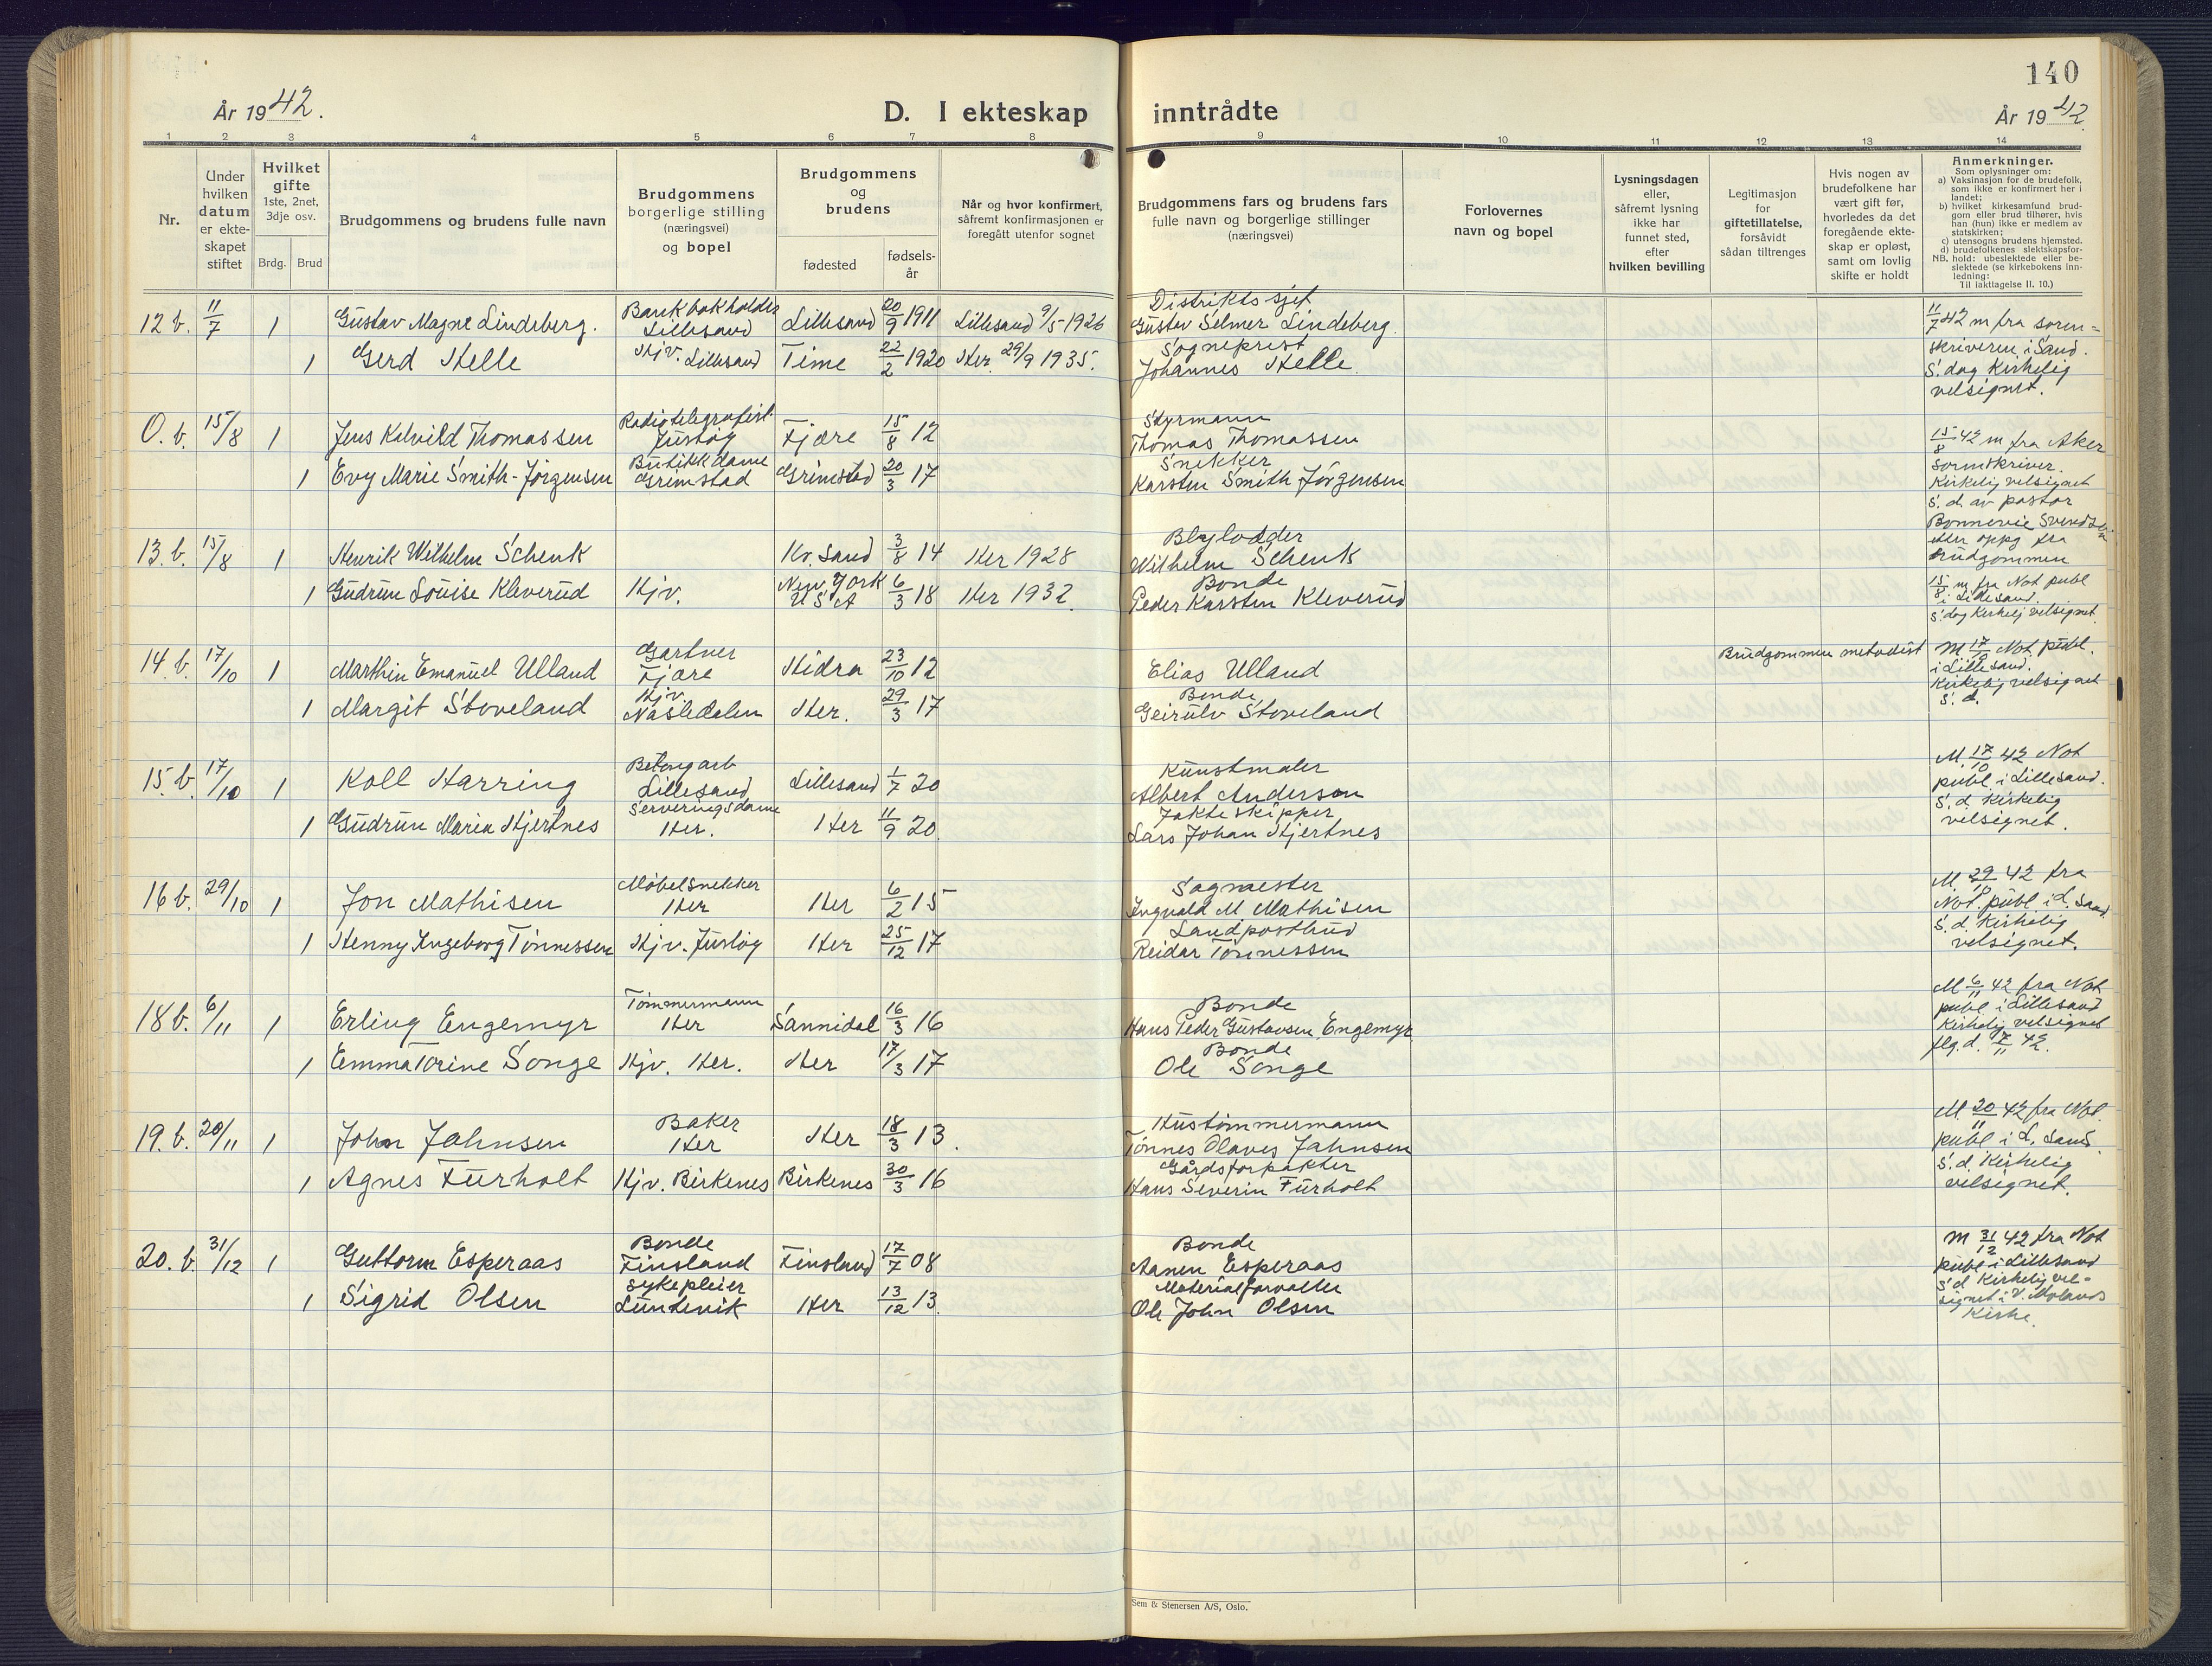 140
År 1942.
D. I ekteskap inntrådte
År 1942.
1 2 3 4 5 6 7 8 9 10 11 12 13 14
Nr.
Under hvilken datum er ekteskapet stiftet
Hvilket gifte 1ste, 2net, 3dje osv.
Brdg. Brud
Brudgommens og brudens fulle navn
Brudgommens borgerlige stilling (næringsvei) og bopel
Brudgommens og brudens
fødested
fødselsår
Når og hvor konfirmert, såfremt konfirmasjonen er foregått utenfor sognet
Brudgommens fars og brudens fars fulle navn og borgerlige stillinger (næringsvei)
Forlovernes navn og bopel
Lysningsdagen eller, såfremt lysning ikke har funnet sted, efter hvilken bevilling
Legitimasjon for giftetillatelse, forsåvidt sådan tiltrenges
Hvis nogen av brudefolkene har vært gift før, hvorledes da det foregående ekteskap er opløst, samt om lovlig skifte er holdt
Anmerkninger.
Som oplysninger om:
a) Vaksinasjon for de brudefolk, som ikke er konfirmert her i landet;
b) hvilket kirkesamfund brudgom eller brud tilhører, hvis han (hun) ikke er medlem av statskirken;
c) utensogns brudens hjemsted.
d) brudefolkenes slektskapsforhold: ubeslektede eller beslektede (se kirkebokens innledning:
NB.
Til iakttagelse II. 10.)
12 b. 11/7 1 Gustav Magne Lindeberg. Bankbokholder Lillesand Lillesand 20/9 1911 Lillesand 9/5 1926 Distriktssjef Gustav Selmer Lindeberg. 11/7 42 m fra sorenskriveren i Sand. S. dag Kirkelig velsignet.
1 Gerd Helle Hjv. Lillesand Time 22/2 1920 Her 29/9 1935. Sogneprest Johannes Helle.
0. b. 15/8 1 Jens Kalvild Thomassen Radiotelegrafist Justøy Fjære 15/8 12 Styrmann Thomas Thomassen 15/8 42 m fra Aker sorenskriver. Kirkelig velsignet s. d. av pastor Bonnevie Svendsen etter oppg fra brudgommen
1 Evy Marie Smith-Jørgensen Butikkdame Grimstad Grimstad 20/3 17 Snekker Karsten Smith Jørgensen
13. b. 15/8 1 Henrik Wilhelm Schenk Kr. Sand 3/8 14 Her 1928 Blylodder Wilhelm Schenk
1 Gudrun Louise Kleverud Hjv. New York USA 6/3 18 Her 1932. Bonde Peder Karsten Kleverud 15/8 m fra Not publ i Lillesand. S. dag Kirkelig velsignet.
14. b. 17/10 1 Marthin Emanuel Ulland Gartner Fjære Hidra 23/10 12 Elias Ulland Brudgommen metodist M 17/10 Not publ. i Lillesand. Kirkelig velsignet s. d.
1 Margit Stoveland Hjv. Nasledalen Her. 29/3 17 Bonde Geirulv Stoveland
15. b. 17/10 1 Koll Harring Betongarb Lillesand Lillesand 1/7 20 Kunstmaler Albert Anderson M. 17/10 42 Not publ. i Lillesand. S. d. Kirkelig velsignet.
1 Gudrun Maria Hjertnes Serveringsdame Her. Her 11/9 20. Jakteskipper Lars Johan Hjertnes
16 b. 29/10 1 Jon Mathisen Møbelsnekker Her Her 6/2 15 Sagmester Ingvald M Mathisen M. 29/10 42 fra Not. publ i L. Sand. S. d. Kirkelig velsignet.
1 Henny Ingeborg Tønnessen Hjv. Justøy Her 25/12 17 Landpostbud Reidar Tønnessen
18 b. 6/11 1 Erling Engemyr Tømmermann Her Sannidal 16/3 16 Bonde Hans Peder Gustavsen Engemyr M 6/11 42 fra Not publ i Lillesand Kirkelig velsignet flg. d. 7/11 42.
1 Emma Torine Songe Hjv. Her. Her 17/3 17 Bonde Ole Songe
19. b. 20/11 1 John Jahnsen Baker Her Her 18/3 13. Hustømmermann Tønnes Olaves Jahnsen M. 20/11 42 fra Not. publ i L. Sand. S. d. Kirkelig velsignet.
1 Agnes Furholt Hjv. Birkenes Birkenes 30/3 16 Gårdsforpakter Hans Severin Furholt
20. b. 31/12 1 Guttorm Esperaas Bonde Finsland Finsland 17/7 08 Bonde Aanen Esperaas M 31/12 42 fra Not publ i Lillesand S. d Kirkelig velsignet i V. Molands Kirke.
1 Sigrid Olsen Sykepleier Luntevik Her 13/12 13. Materialforvalter Ole John Olsen
Sem & Stenersen A/S, Oslo.